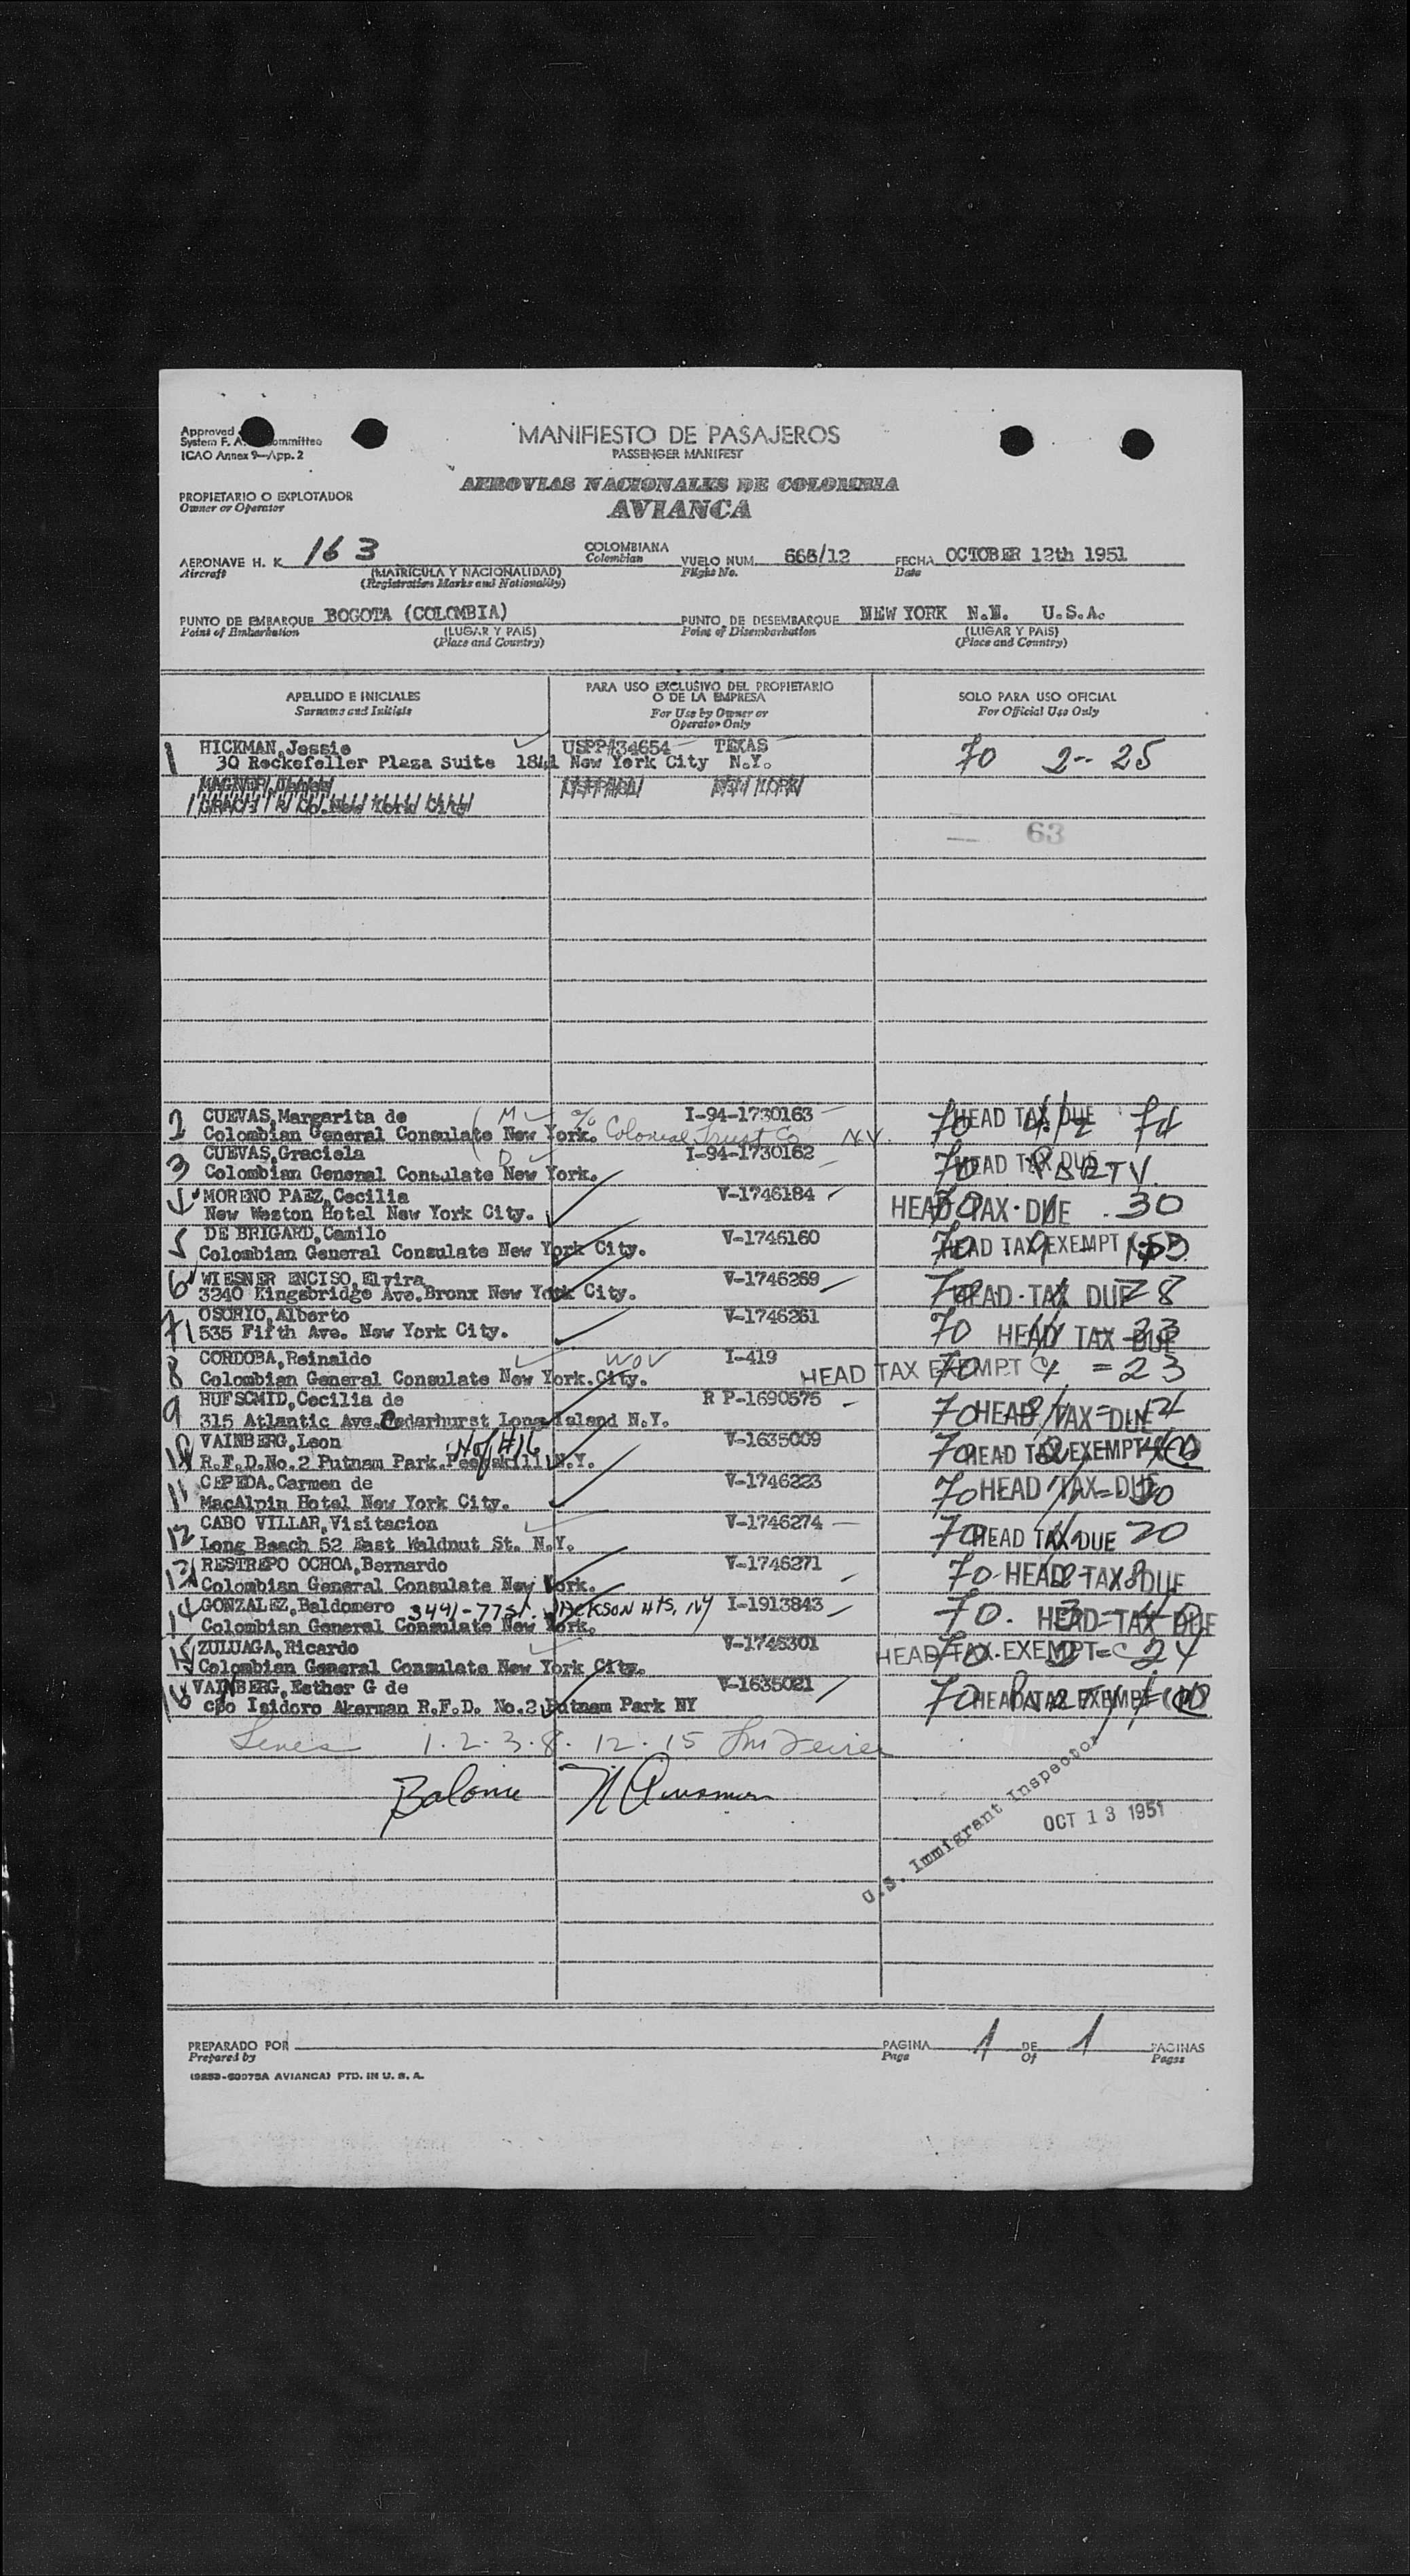 Approved
System F. A. ommittee
ICAO Annex 9—App. 2
MANIFIESTO DE PASAJEROS
PASSENGER MANIFEST
AEROVIAS NACIONALES DE COLOMBIA
AVIANCA
PROPIETARIO O EXPLOTADOR
Owner or Operator
AERONAVE H. K. 163 COLOMBIANA VUELO NUM. 666/12 FECHA OCTOBER 12th 1951
Aircraft (MATRICULA Y NACIONALIDAD) Colombian Flight No. Date
(Registration Marks and Nationality)
PUNTO DE EMBARQUE BOGOTA (COLOMBIA) PUNTO DE DESEMBARQUE NEW YORK N.N. U.S.A.
Point of Embarkation (LUGAR Y PAIS) Point of Disembarkation (LUGAR Y PAIS)
(Place and Country) (Place and Country)
APELLIDO E INICIALES PARA USO EXCLUSIVO DEL PROPIETARIO O DE LA EMPRESA SOLO PARA USO OFICIAL
Surname and Initials For Use by Owner or Operator Only For Official Use Only
1 HICKMAN,Jessie USPP#34654 TEXAS 70 2-- 25
30 Rockefeller Plaza Suite 1841 New York City N.Y.
63
2 CUEVAS,Margarita de M I-94-1730163 70 HEAD TAX DUE
Colombian General Consulate New York. % Colonial Trust Co N.Y.
3 CUEVAS,Graciela D I-94-1730162 70 HEAD TAX DUE
Colombian General Consulate New York.
MORENO PAEZ,Cecilia V-1746184 HEAD TAX DUE 30
New Weston Hotel New York City.
5 DE BRIGARD,Camilo V-1746160 70 HEAD TAX EXEMPT
Colombian General Consulate New York City.
6 WIESNER ENCISO,Elvira V-1746269 70 HEAD TAX DUE 28
3240 Kingsbridge Ave.Bronx New York City.
7 OSORIO,Alberto V-1746261 70 HEAD TAX DUE 23
535 Fifth Ave. New York City.
8 CORDOBA,Reinaldo I-419 HEAD TAX EXEMPT 70 = 23
Colombian General Consulate New York.City.
9 HUFSCMID,Cecilia de R P-1690575 70 HEAD TAX DUE
315 Atlantic Ave.Cedarhurst Long Island N.Y.
10 VAINBERG,Leon H of #16 V-1635009 70 HEAD TAX EXEMPT
R.F.D.No.2 Putnam Park.Peekskill N.Y.
11 CEPEDA,Carmen de V-1746223 70 HEAD TAX DUE
MacAlpin Hotel New York City.
12 CABO VILLAR,Visitacion V-1746274 70 HEAD TAX DUE 20
Long Beach 52 East Waldnut St. N.Y.
13 RESTREPO OCHOA,Bernardo V-1746271 70 HEAD TAX DUE
Colombian General Consulate New York.
14 GONZALEZ,Baldomero 3491-77 St. JACKSON HTS, NY I-1913843 70. HEAD TAX DUE
Colombian General Consulate New York.
15 ZULUAGA,Ricardo V-1746301 HEAD TAX EXEMPT 70 24
Colombian General Consulate New York City.
16 VAINBERG,Esther G de V-1635021 70 HEAD TAX EXEMPT
c/o Isidoro Akerman R.F.D. No.2 Putnam Park NY
Lines 1. 2. 3. 8. 12. 15
Balance
U.S. Immigrant Inspector
OCT 13 1951
PREPARADO POR PAGINA 1 DE 1 PAGINAS
Prepared by Page Of Pages
(9253-60075A AVIANCA) PTD. IN U. S. A.